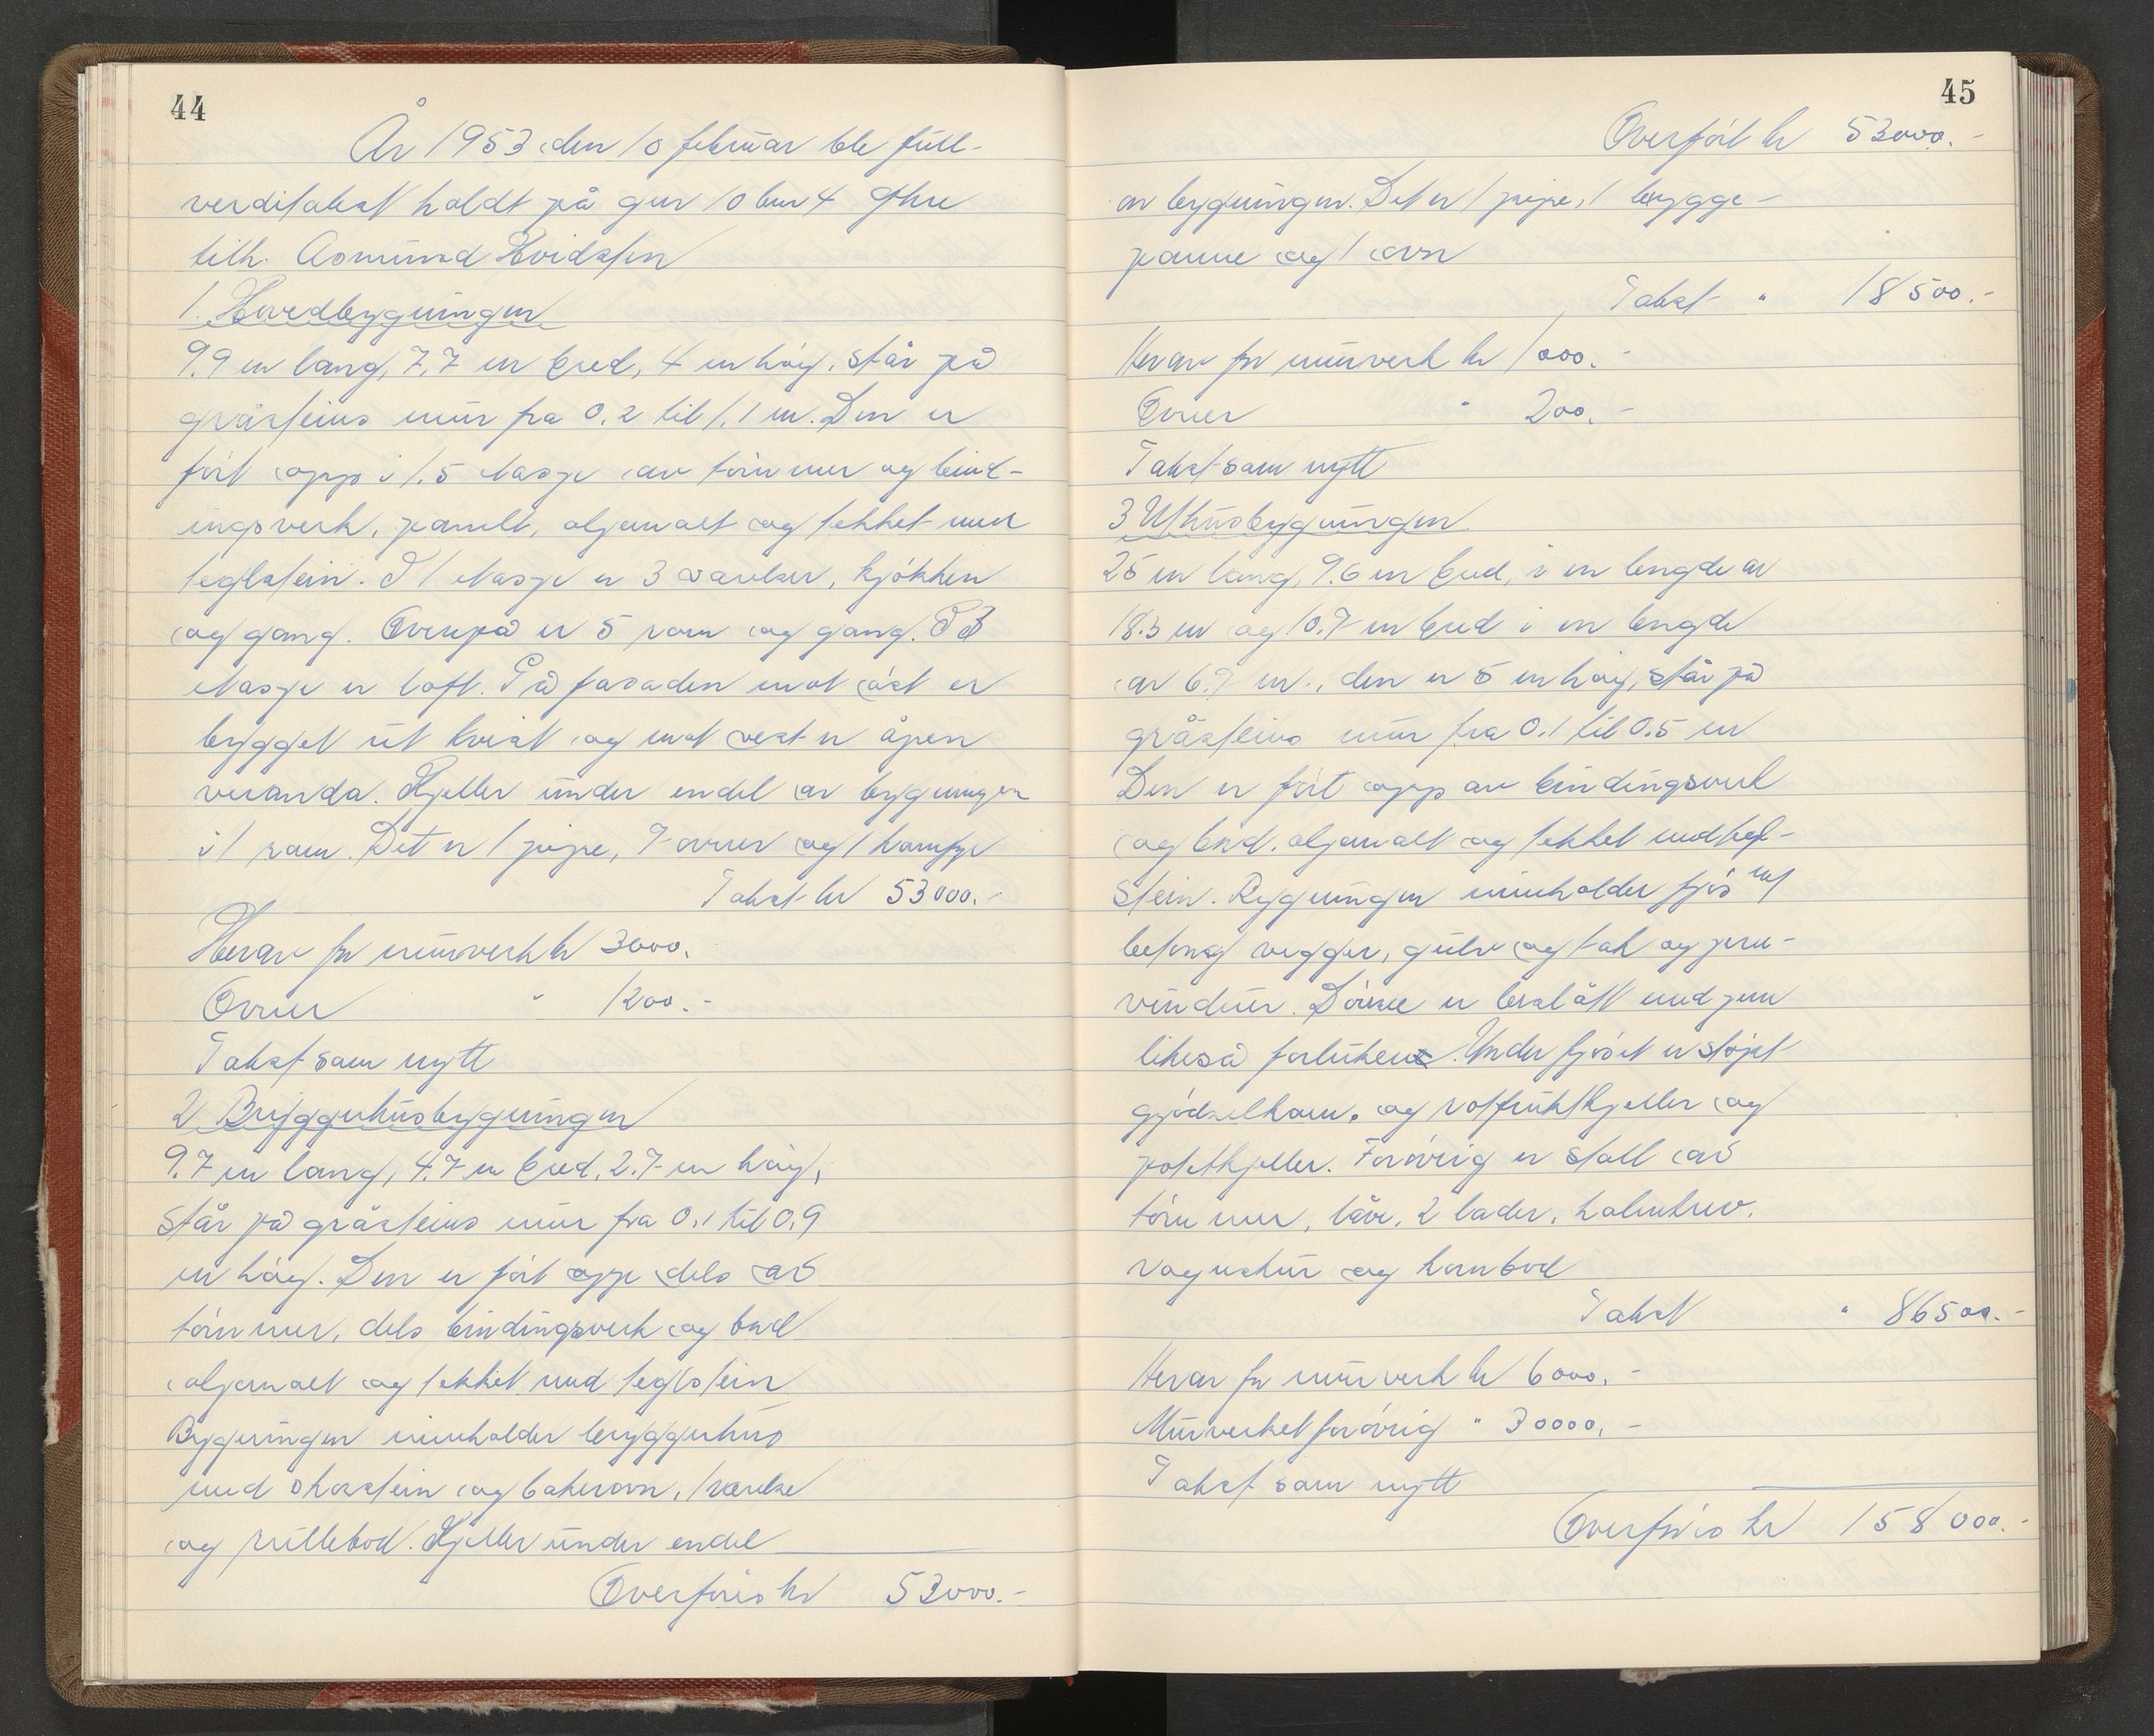 44
År 1953 den 10 februar ble full-
verditakst holdt på gnr 10 bnr 4
tilh. Asmund Hvidsten
1. Hovedbygningen
9.9 m lang, 7.7 m bred, 4 m høy, står på
gråsteins mur fra 0.2 til 1.1 m. Den er
ført opp i 1.5 etasje av tømmer og bind-
ingsverk, panelt, oljemalt og tekket med
teglstein. I 1 etasje er 3 værelser, kjøkken
og gang. Ovenpå er 5 rom og gang. I 3
etasje er loft. På fasaden mot øst er
bygget ut kvist og mot vest er åpen
veranda. Kjeller under endel av bygningen
i 1 rom. Det er 1 pipe, 7 ovner og 1 komfyr
Takst kr 53000.-
Herav for murverk kr 3000.
Ovner " 1200.-
Takst som nytt
2 Bryggerhusbygningen
9.7 m lang, 4.7 m bred, 2.7 m høy,
står på gråsteins mur fra 0.1 til 0.9
m høy. Den er ført opp dels av
tømmer, dels bindingsverk og bord
oljemalt og tekket med teglstein
Bygningen inneholder bryggerhus
med skorstein og bakerovn, 1 værelse
og rullebod. Kjeller under endel
Overføres kr 53000.-
45
Overført kr 53000.-
av bygningen. Det er 1 pipe, 1 brygge-
panne og 1 ovn
Takst " 18500.-
Herav for murverk kr 1000.-
Ovner " 200.-
Takst som nytt
3 Uthusbygningen
25 m lang, 9.6 m bred, i en lengde av
18.3 m og 10.7 m bred i en lengde
av 6.7 m., den er 5 m høy, står på
gråsteins mur fra 0.1 til 0.5 m
Den er ført opp av bindingsverk
og bord, oljemalt og tekket med tegl-
stein. Bygningen inneholder fjøs m/
betong vegger, gulv og tak og jern-
vinduer. Dørene er beslått med jern
likeså forlukene. Under fjøset er støpt
gjødselkom. og rotfruktkjeller og
potetkjeller. Forøvrig er stall av
tømmer, låve, 2 lader, halmtrev.
vognskur og kornbod
Takst " 86500.-
Herav for murverk kr 6000.-
Murverket forøvrig " 30000.-
Takst som nytt
Overføres kr 158000.-